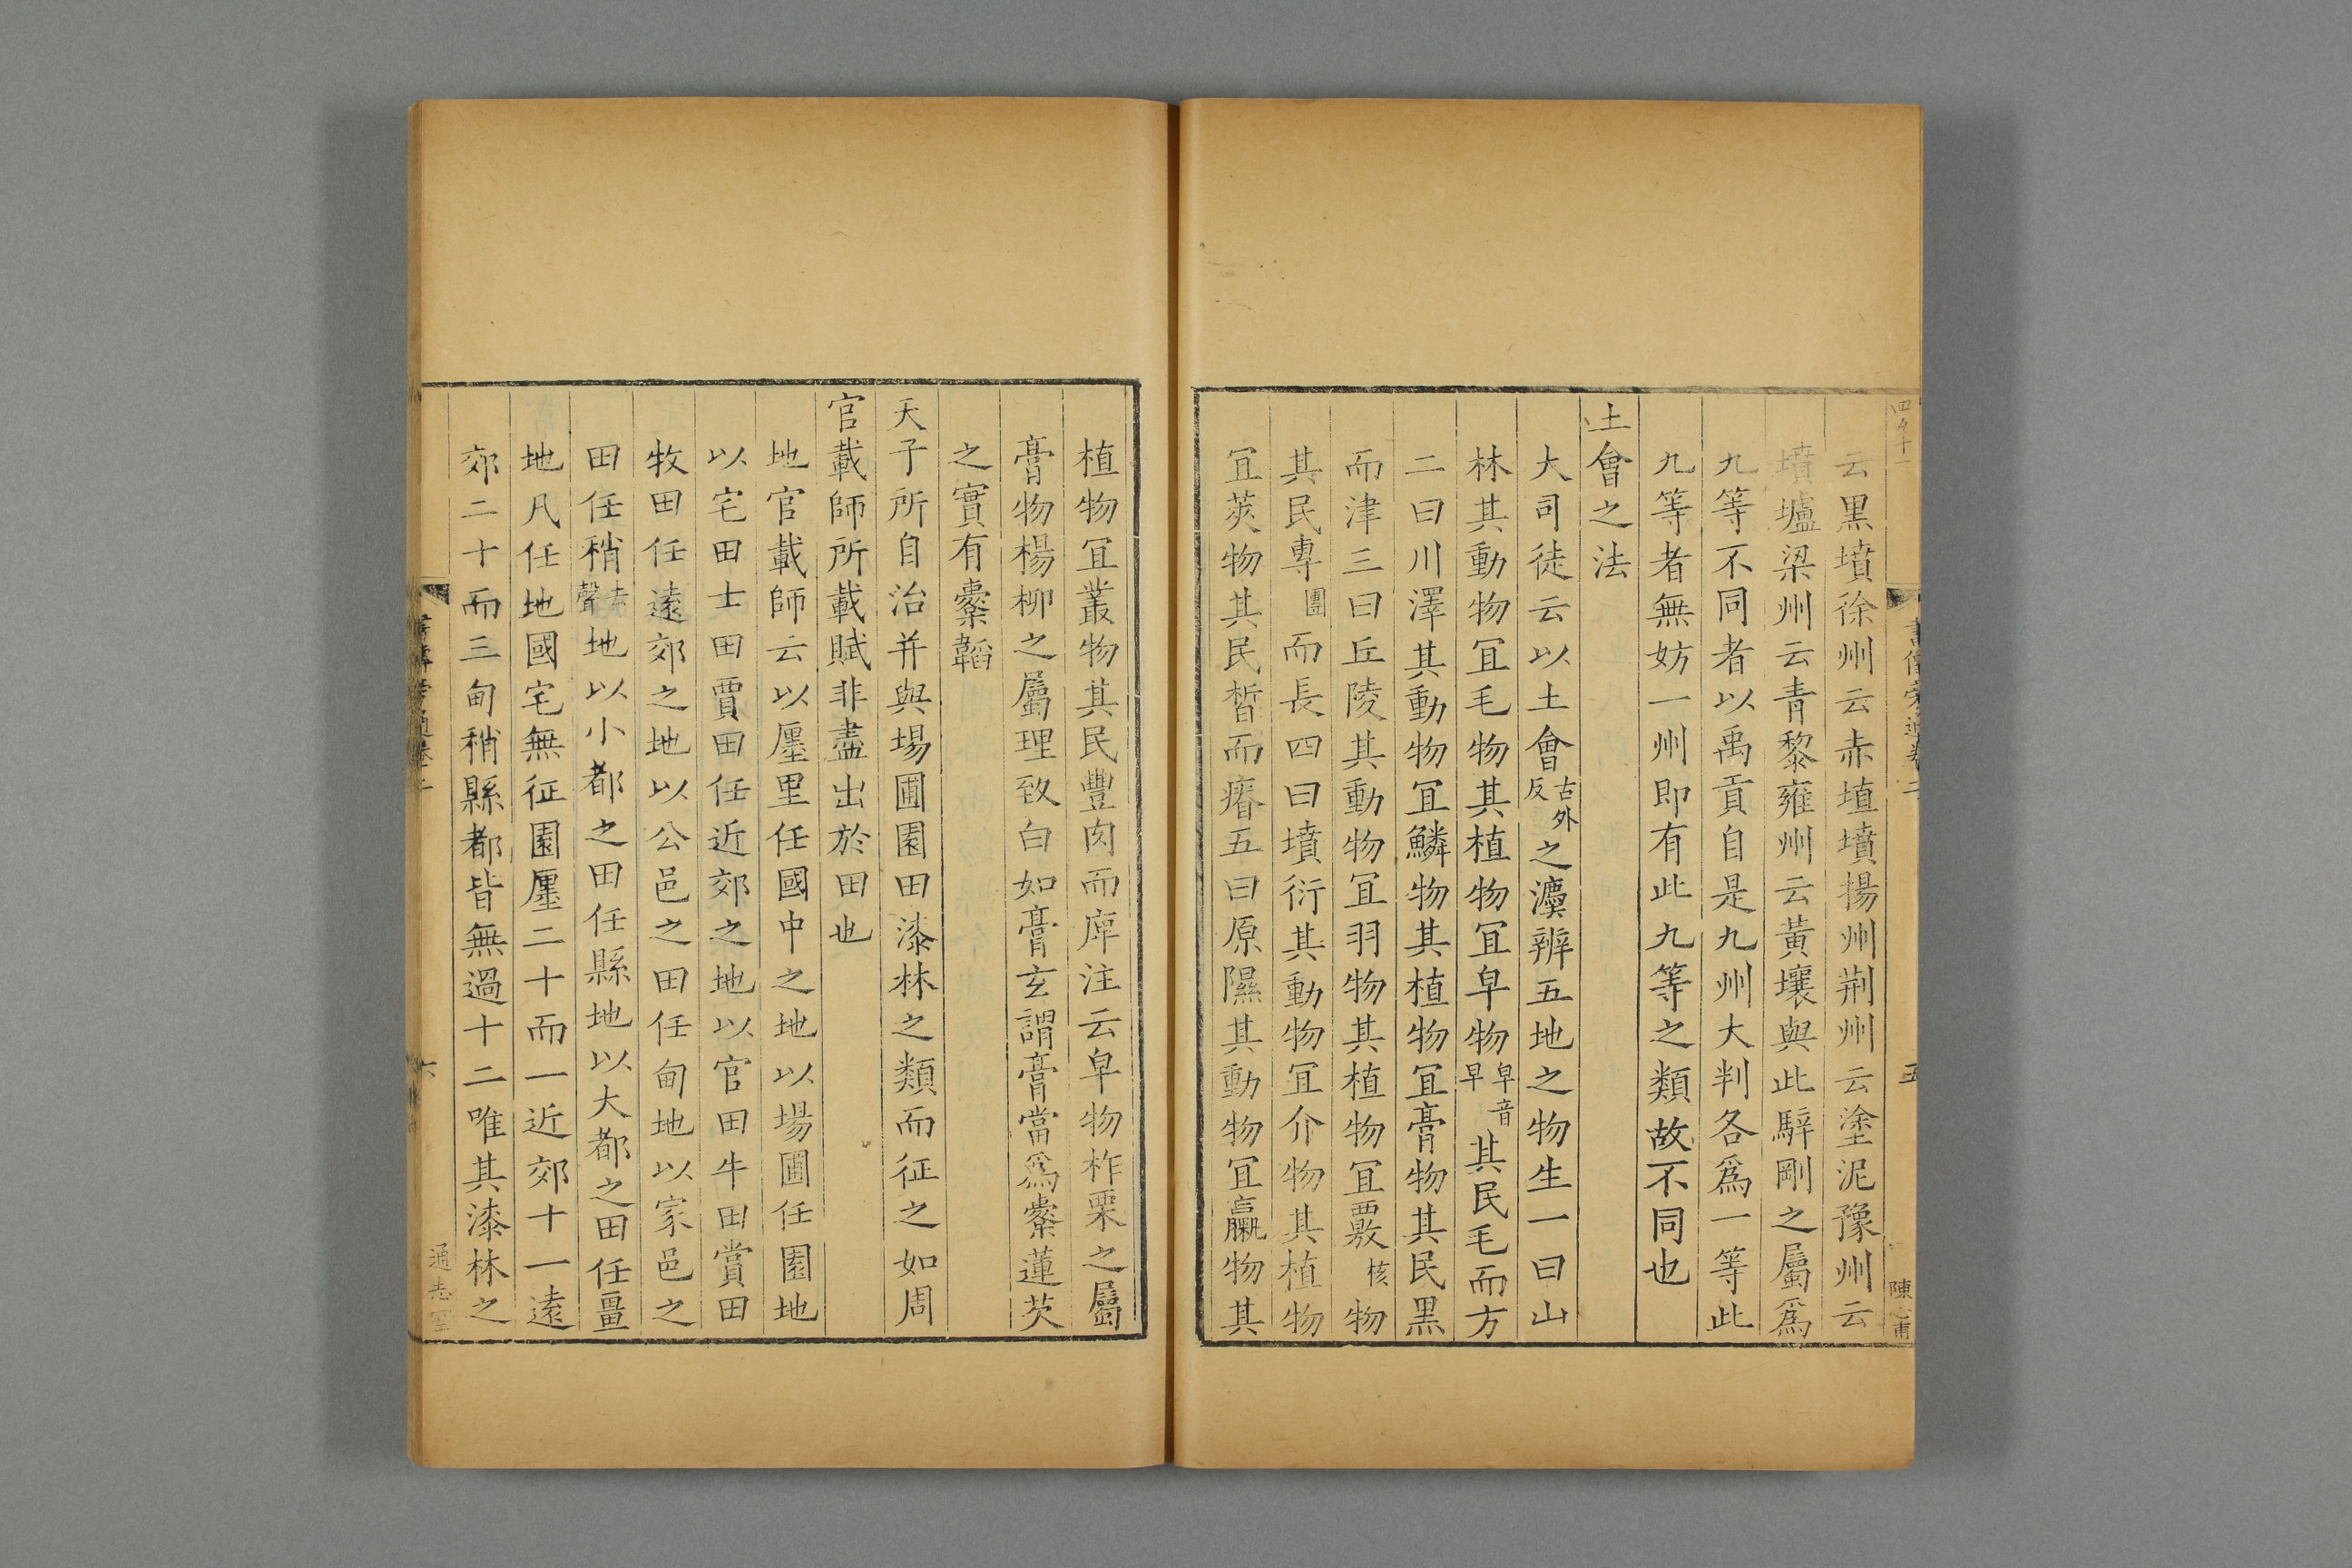 云黒墳徐州云赤埴墳揚州荆州云塗泥豫州云
墳壚梁州云青黎雍州云黃壤與此騂剛之屬爲
九等不同者以禹貢自是九州大判各爲一等此
九等者無妨一州即有此九等之類故不同也
土會之法
大司徒云以土會古外反之灋辨五地之物生一曰山
林其動物冝毛物其植物冝早物早音早其民毛而方
二曰川澤其動物冝鱗物其植物冝膏物其民黒
而津三曰丘陵其動物冝羽物其植物冝覈核物
其民專團而長四曰墳衍其動物冝介物其植物
冝莢物其民晳而瘠五曰原隰其動物冝臝物其
陳
五
植物冝叢物其民豐肉而庳注云皁物柞栗之屬
膏物楊柳之屬理致白如膏玄謂膏當爲櫜蓮芡
之實有櫜韜
天子所自治并與場圃園田漆林之類而征之如周
官載師所載賦非盡出於田也
地官載師云以廛里任國中之地以場圃任園地
以宅田士田賈田任近郊之地以官田牛田賞田
牧田任遠郊之地以公邑之田任甸地以家邑之
田任稍去聲地以小都之田任縣地以大都之田任畺
地凡任地國宅無征園廛二十而一近郊十一遠
郊二十而三甸稍縣都皆無過十二唯其漆林之
六
通志堂